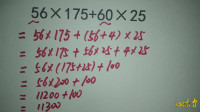 56×175+60×25
= 56×175 + (56+4) × 25
= 56×175 + 56×25 + 4×25
= 56×(175+25) + 100
= 56×200 + 100
= 11200 + 100
= 11300